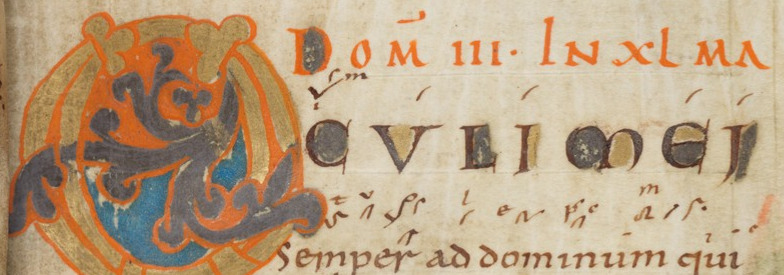 DOM̄ III· IN XL MA
OCULI MEI
Semper ad dominum qui